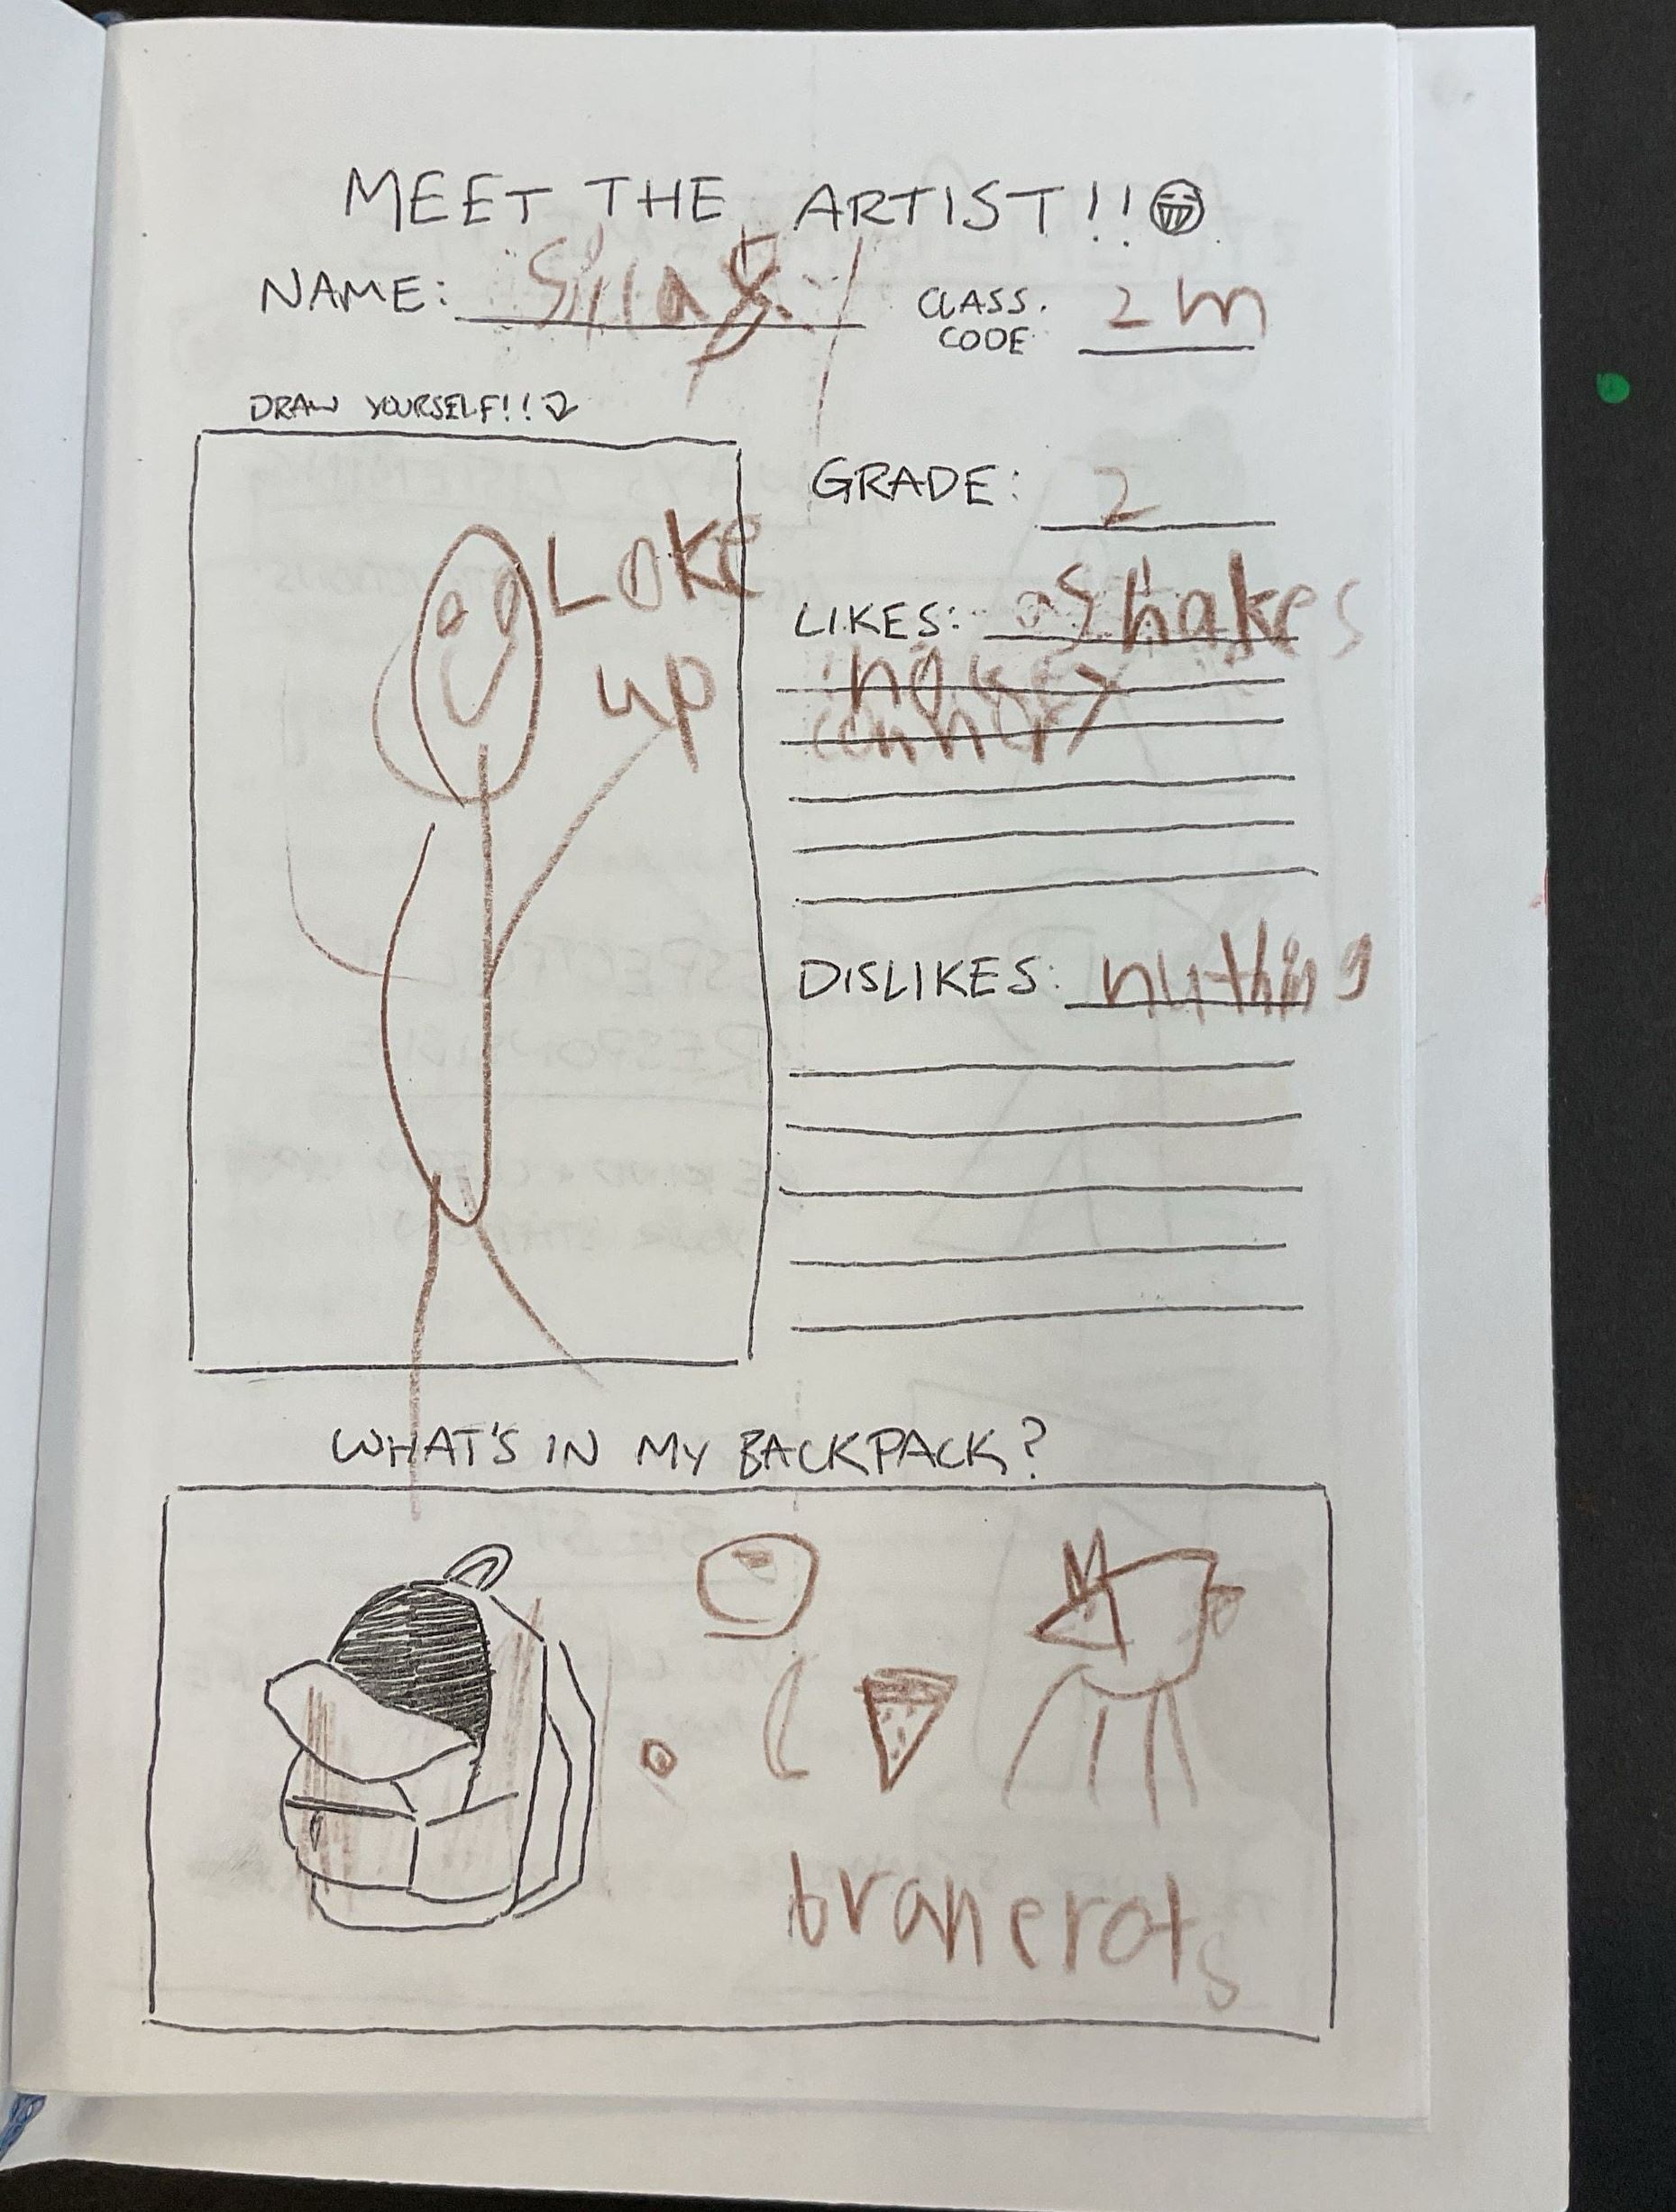 MEET THE ARTIST!!
NAME: Silas
CLASS. CODE 2m
DRAW YOURSELF!!
Loke
up
GRADE: 2
LIKES: Shakes
DISLIKES: nuthing
WHAT'S IN MY BACKPACK?
branerots